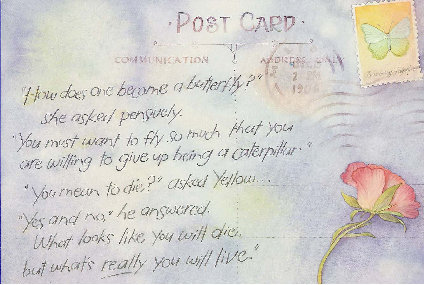 POST CARD
COMMUNICATION ADDRESS ONLY
"How does one become a butterfly?"
she asked pensively.
"You must want to fly so much that you
are willing to give up being a caterpillar."
"You mean to die?" asked Yellow...
"Yes and no," he answered.
What looks like you will die.
but what's really you will live."